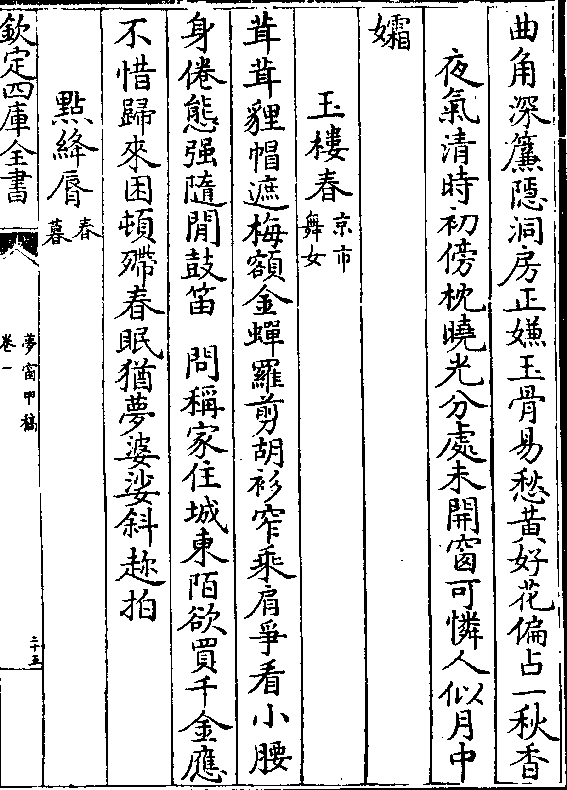 曲角深簾隠洞房正嫌玉骨易愁黄好花偏占一秋香
夜氣清時初傍枕曉光分處未開窗可憐人似月中
孀
玉樓春京市舞女
茸茸貍帽遮梅額金蟬羅剪胡衫窄乘肩爭看小腰
身倦態强隨閒鼓笛　問稱家住城東陌欲買千金應
不惜歸來困頓殢春眠猶夢婆娑斜趂拍
點絳脣春暮
欽定四庫全書
夢窗甲稿
卷一
二十五